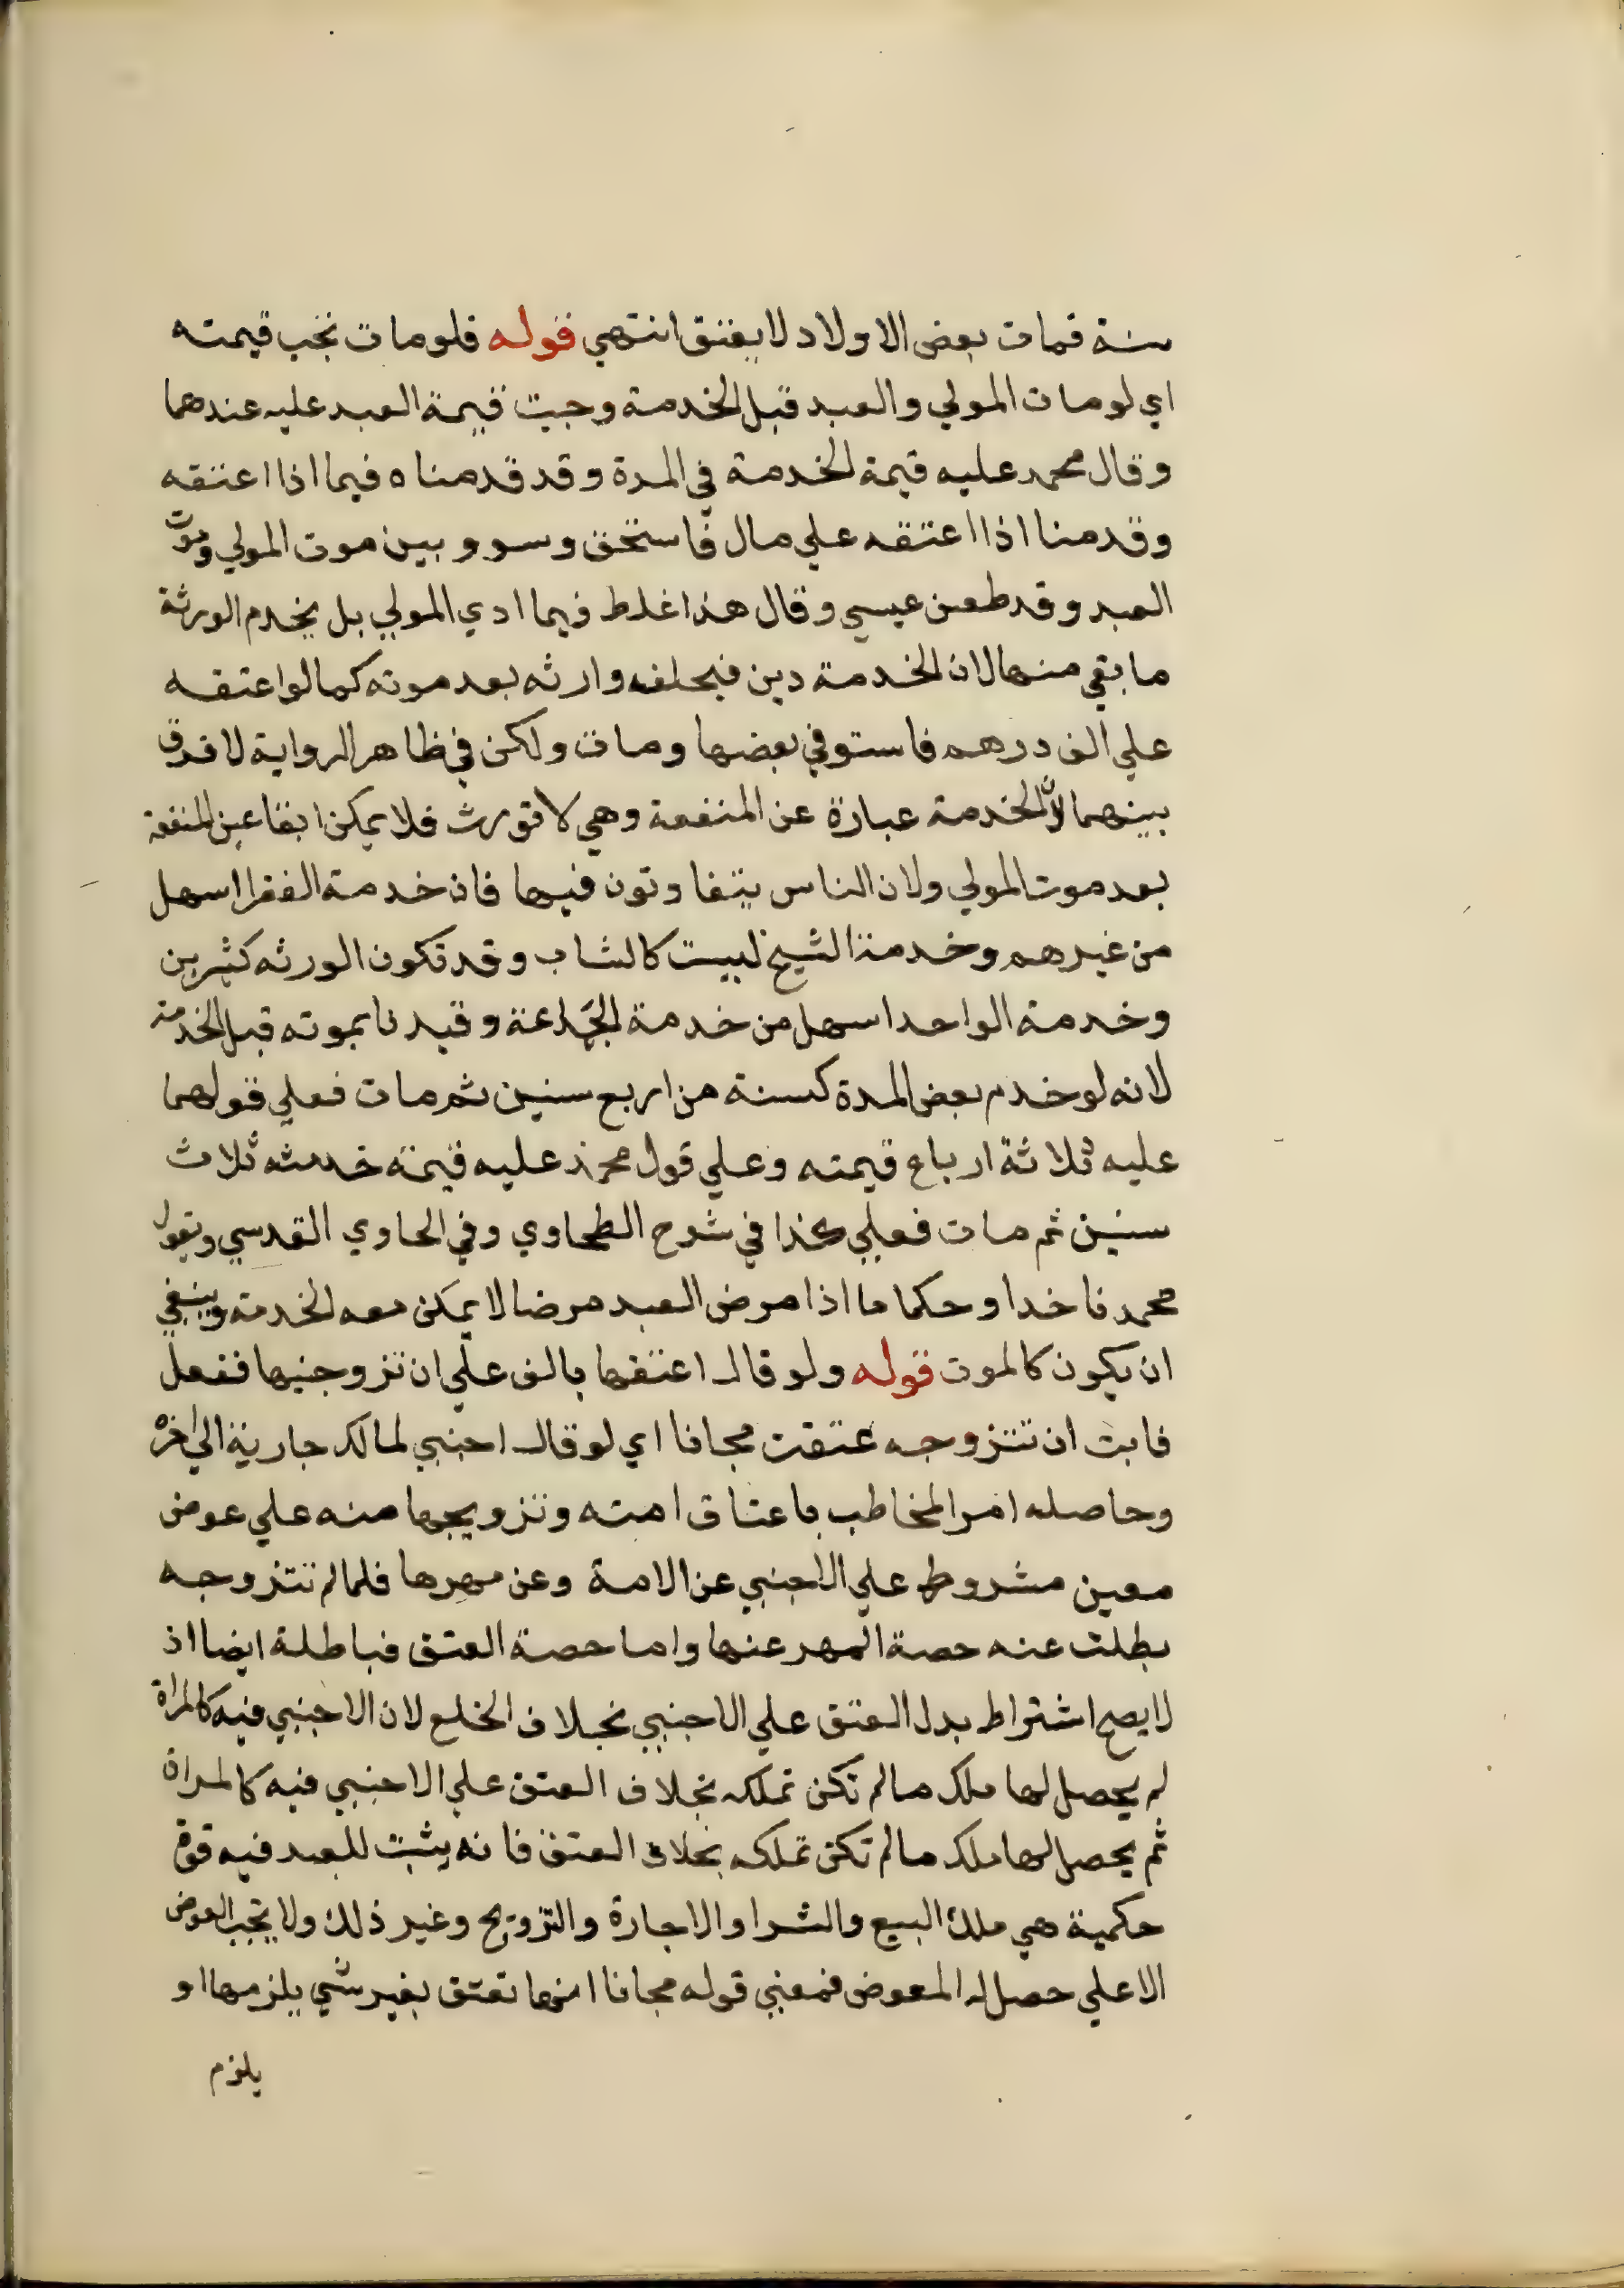 سنة فمات بعض الاولاد لا يعتق انتهي قوله فلو مات تجب قيمته
اي لو مات المولي والعبد قبل الخدمة وجبت قيمة العبد عليه عندهما
وقال محمد عليه قيمة الخدمة في المدة وقد قدمناه فيما اذا اعتقه
وقدمنا اذا اعتقه علي مال فاستحق وسوو بين موت المولي وموت
العبد وقد طعن عيسي وقال هذا غلط فيما ادي المولي بل يخدم الورثة
ما بقي منها لان الخدمة دين فيخلفه وارثه بعد موته كما لو اعتقه
علي الف درهم فاستوفي بعضها ومات ولكن في ظاهر الرواية لا فرق
بينهما لان الخدمة عبارة عن المنفعة وهي لا تورث فلا يمكن ابقا عين المنفعة
بعد موت المولي ولان الناس يتفاوتون فيها فان خدمة الفقرا اسهل
من غيرهم وخدمة الشيخ ليست كالشاب وقد تكون الورثه كثيرين
وخدمة الواحد اسهل من خدمة الجماعة وقيدنا بموته قبل الخدمة
لانه لو خدم بعض المدة كسنة من اربع سنين ثم مات فعلي قولهما
عليه ثلاثة ارباع قيمته وعلي قول محمد عليه قيمة خدمته ثلاث
سنين ثم مات فعلي كذا في شرح الطحاوي وفي الحاوي القدسي ويقول
محمد ناخدا وحكما ما اذا مرض العبد مرضا لا يمكن معه الخدمة وينبغي
ان يكون كالموت قوله ولو قال اعتقها بالف علي ان تزوجنيها ففعل
فابت ان تتزوجه عتقت مجانا اي لو قال اجنبي لمالك جارية الي اخره
وحاصله امر المخاطب باعتاق امته وتزويجها منه علي عوض
معين مشروط علي الاجنبي عن الامة وعن مهرها فلما لم تتزوجه
بطلت عنه حصة المهر عنها واما حصة العتق فباطلة ايضا اذ
لا يصح اشتراط بدل العتق علي الاجنبي بخلاف الخلع لان الاجنبي فيه كالمراة
لم يحصل لها ملك ما لم تكن تملكه بخلاف العتق علي الاجنبي فيه كالمراة
ثم يحصل لها ملك ما لم تكن تملكه بخلاف العتق فانه يثبت للعبد فيه قوة
حكمية هي ملك البيع والشرا والاجارة والتزويج وغير ذلك ولا يجب العوض
الا علي حصل له المعوض فمعني قوله مجانا انها تعتق بغير شي يلزمها او
يلزم